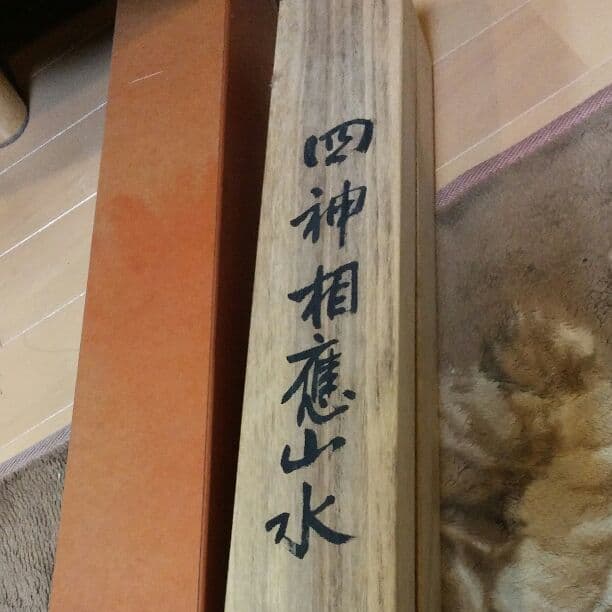 四神相應山水